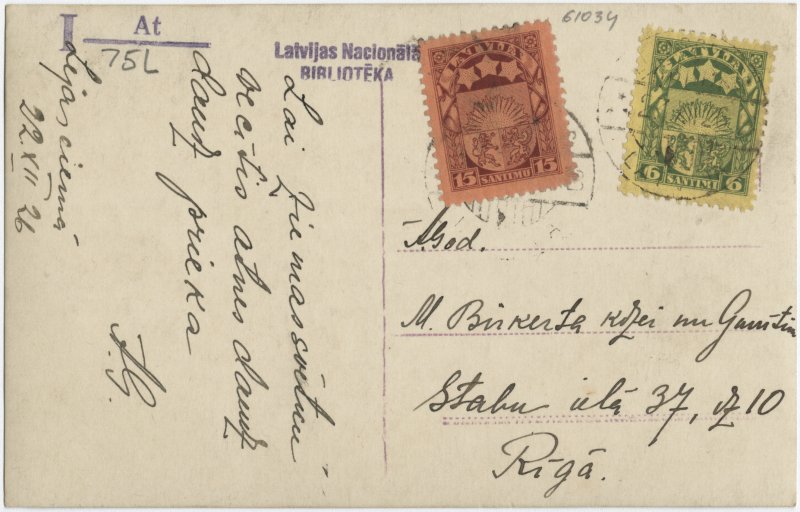 I At
75L
61034
Latvijas Nacionālā
BIBLIOTĒKA
LATVIJA
15 SANTIMU 15
LATVIJA
6 SANTIMI 6
Lejasciemā
22.XII 26
Lai Ziemassvētku
vecītis atnes daudz
daudz prieka
A.G.
Agod.
M. Birkerta kdzei un
Stabu ielā 37, dz 10
Rīgā.